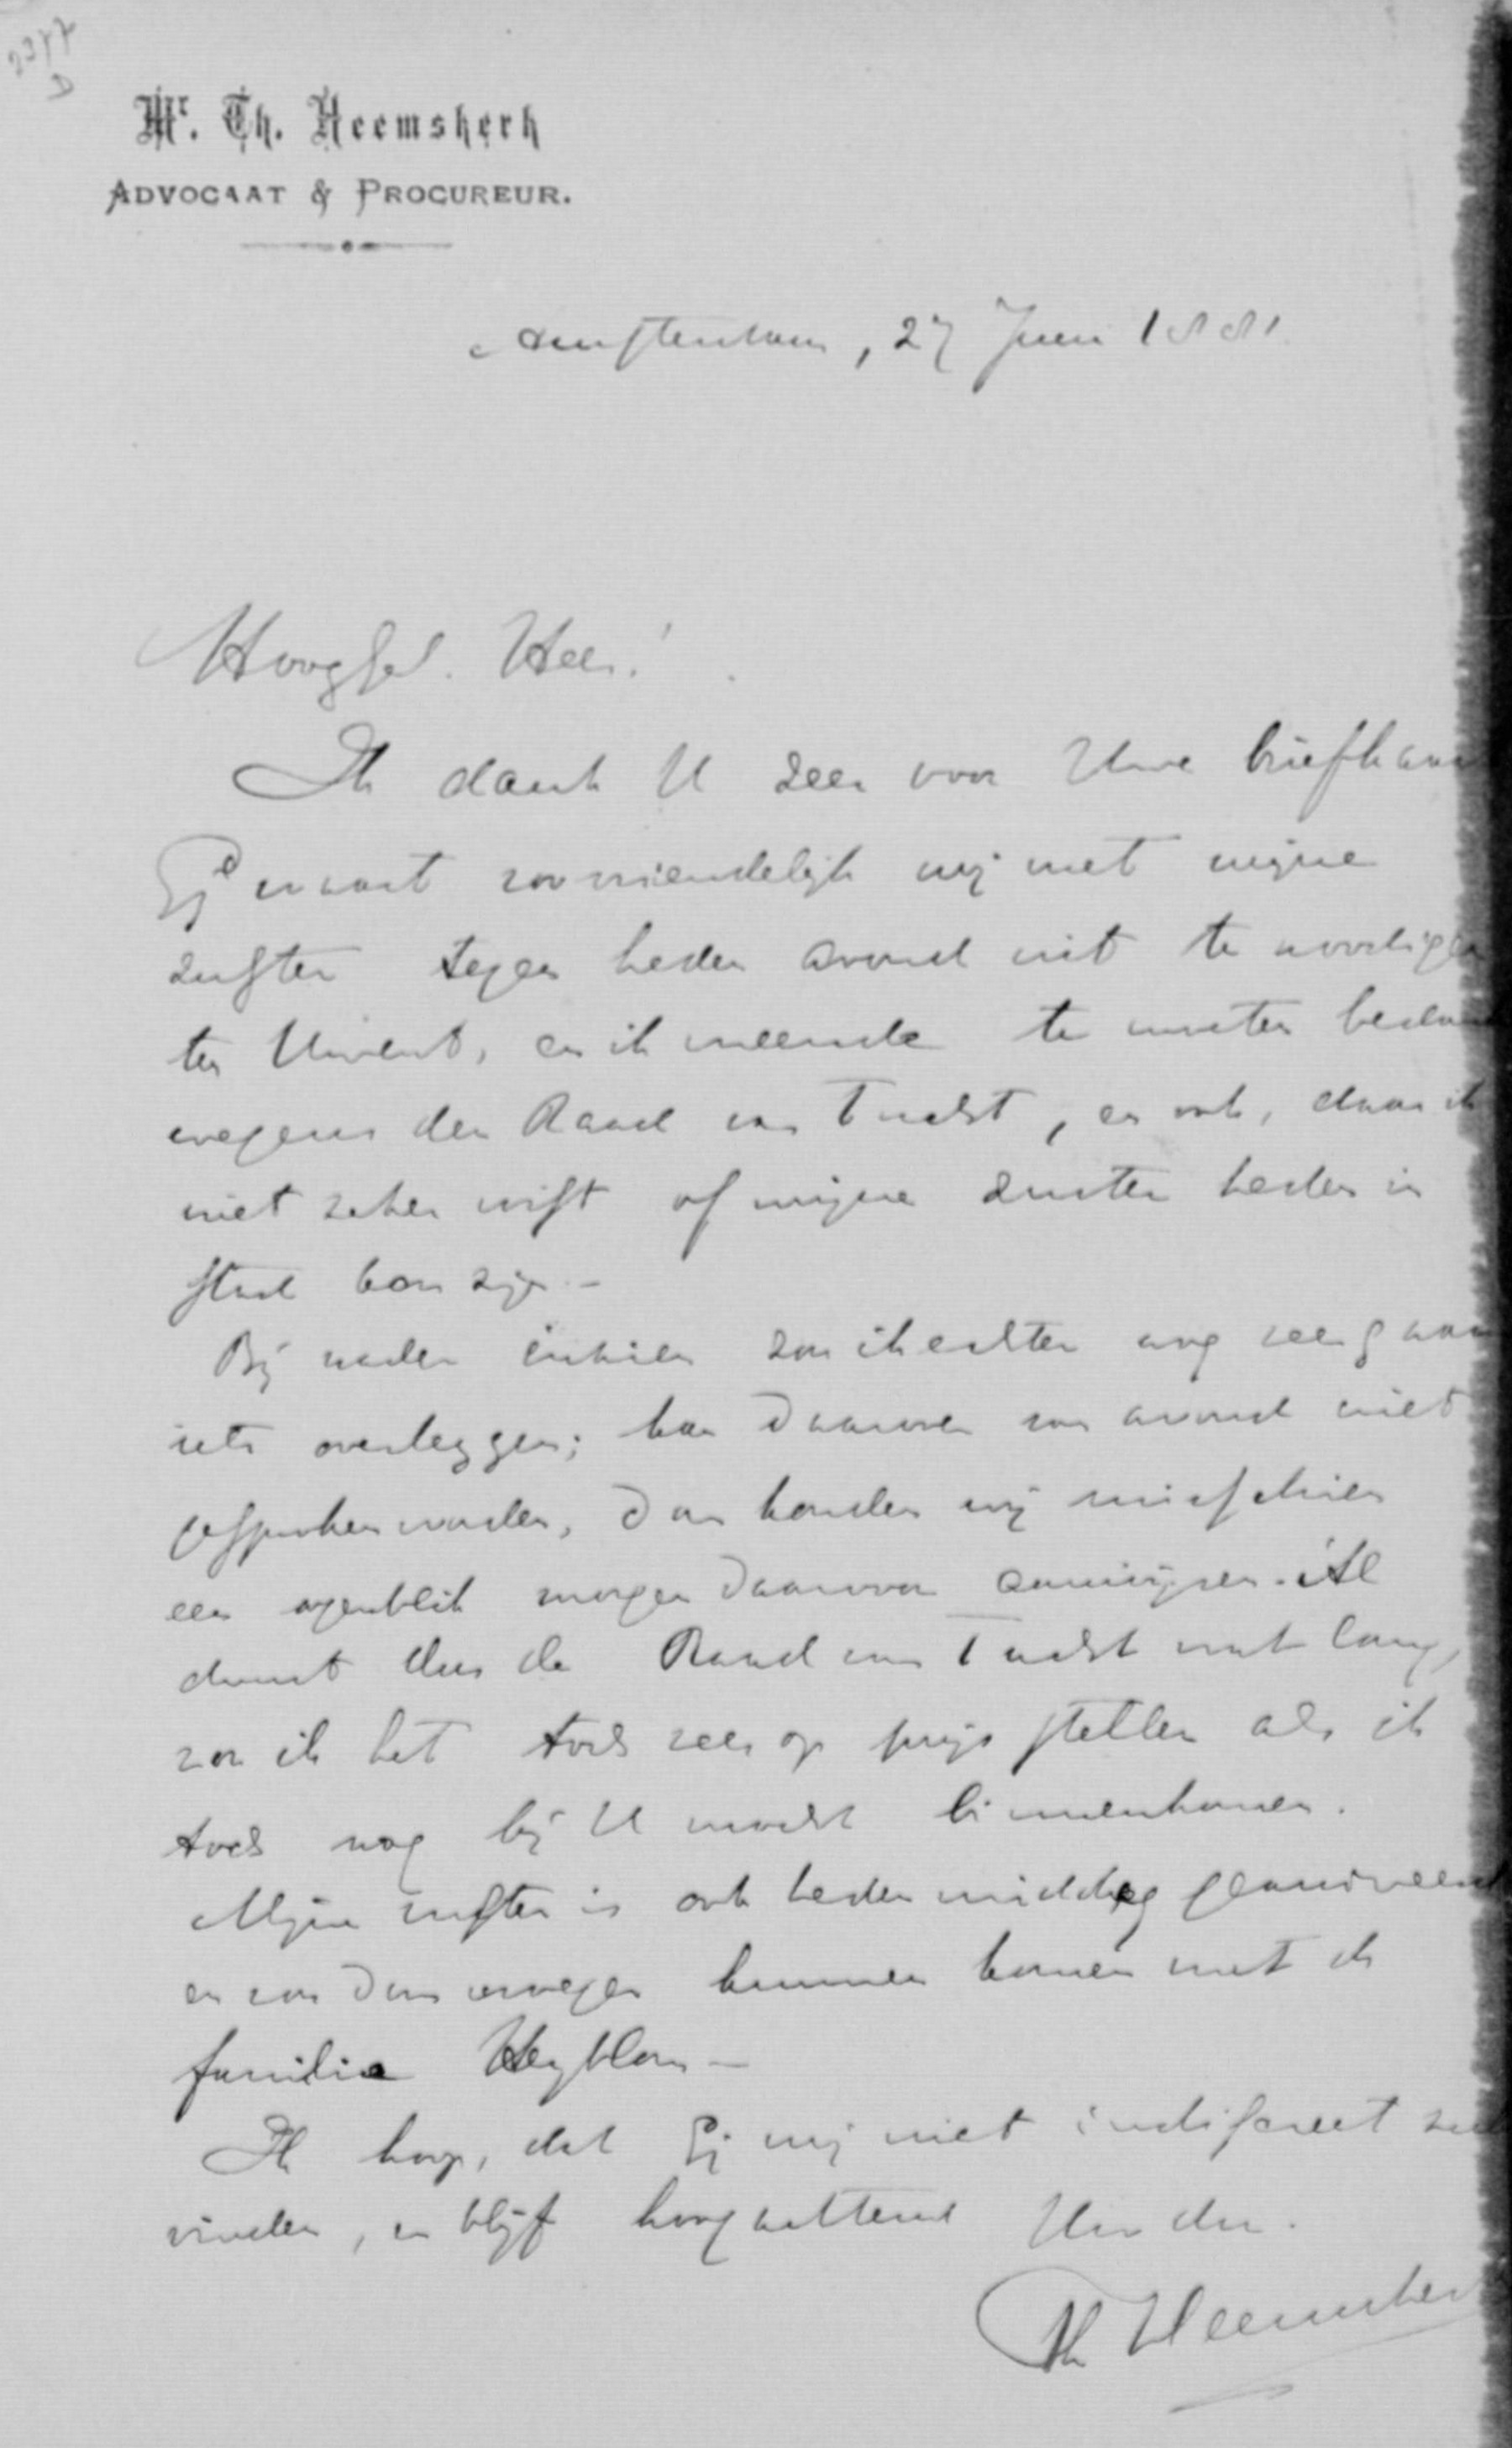 2377
D
Mr. Th. Heemskerk
ADVOCAAT & PROCUREUR.
Amsterdam, 27 Juni 1881
Hooggel. Heer!
Ik dank U zeer voor Uwe briefkaar
Gij waart zoo vriendelijk mij met mijne
zuster tegen heden avond uit te noodigen
ten Uwent, en ik meende te moeten bedan
wegens den Raad van Toezicht, en ook, daar ik
niet zeker wist of mijne zuster heden in
stad kon zijn. -
Bij nader inzien zou ik echter nog zeer gaar
iets overleggen; kan daarover van avond niet
gesproken worden, dan konden wij misschien
een ogenblik morgen daarvoor aanwijzen. Al
duurt dus de Raad van Toezicht wat lang,
zou ik het toch zeer op prijs stellen als ik
toch nog bij U mocht binnenkomen.
Mijne zuster is ook heden middag gearriveerd
en zou dan kunnen komen met de
familie Heyblom -
Ik hoop, dat Gij mij niet indiscreet zult
vinden, en blijf hoogachtend Uw dw.
Th Heemskerk